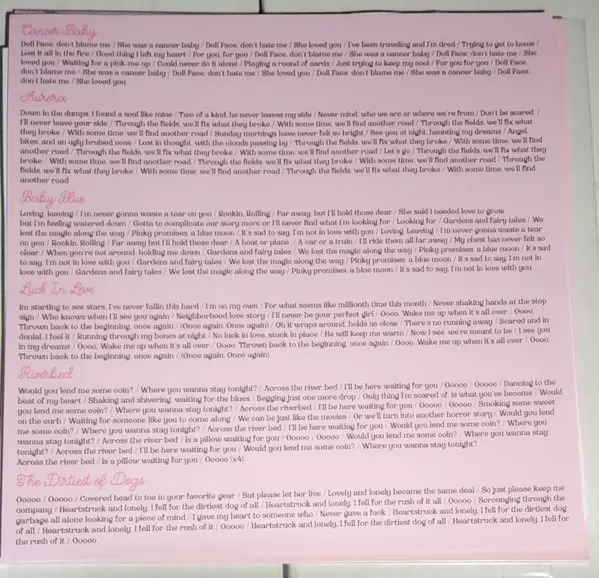 Cancer Baby
Doll Face, don't blame me / She was a cancer baby / Doll Face, don't hate me / She loved you / I've been traveling and I'm tired / Trying to get to home /
Lost it all in the fire / Good thing I left my heart / For you, for you / Doll Face, don't blame me / She was a cancer baby / Doll Face, don't hate me / She
loved you / Waiting for a pick me up / Could never do it alone / Playing a round of cards / Just trying to keep my cool / For you for you / Doll Face,
don't blame me / She was a cancer baby / Doll Face, don't hate me / She loved you / Doll Face, don't blame me / She was a cancer baby / Doll Face,
don't hate me / She loved you
Aurora
Down in the dumps, I found a soul like mine / Two of a kind, he never leaves my side / Never mind, who we are or where we're from / Don't be scared, /
I'll never leave your side / Through the fields, we'll fix what they broke / With some time, we'll find another road / Through the fields, we'll fix what
they broke / With some time, we'll find another road / Sunday mornings have never felt so bright / See you at night, haunting my dreams / Angel
bites, and an ugly bruised nose / Lost in thought, with the clouds passing by / Through the fields, we'll fix what they broke / With some time, we'll find
another road / Through the fields, we'll fix what they broke / With some time, we'll find another road / Let's go / Through the fields, we'll fix what they
broke / With some time, we'll find another road / Through the fields, we'll fix what they broke / With some time, we'll find another road / Through the
fields, we'll fix what they broke / With some time, we'll find another road / Through the fields, we'll fix what they broke / With some time, we'll find
another road
Baby Blue
Loving, leaving / I'm never gonna waste a tear on you / Rockin, Rolling / Far away, but I'll hold those dear / She said I needed love to grow,
but I'm feeling watered down / Gotta to complicate our story more or I'll never find what I'm looking for / Looking for / Gardens and fairy tales / We
lost the magic along the way / Pinky promises, a blue moon / It's sad to say, I'm not in love with you / Loving, Leaving / I'm never gonna waste a tear
on you / Rockin, Rolling / Far away but I'll hold those dear / A boat or plane / A car or a train / I'll ride them all far away / My chest has never felt so
clear / When you're not around, holding me down / Gardens and fairy tales / We lost the magic along the way / Pinky promises, a blue moon / It's sad
to say, I'm not in love with you / Gardens and fairy tales / We lost the magic along the way / Pinky promises, a blue moon / It's sad to say, I'm not in
love with you / Gardens and fairy tales / We lost the magic along the way / Pinky promises, a blue moon / It's sad to say, I'm not in love with you
Luck In Love
Im starting to see stars, I've never fallin this hard / I'm on my own / For what seems like millionth time this month / Never shaking hands at the stop
sign / Who knows when I'll see you again / Neighborhood love story / I'll never be your perfect girl / Oooo, Wake me up when it's all over / Oooo,
Thrown back to the beginning, once again / (Once again, Once again) / Oh it wraps around, holds us close / There's no running away / Scared and in
denial, I feel it / Running through my bones at night / No luck in love, stuck in place / He will keep me warm / Now I see, we're meant to be / I see you
in my dreams / Oooo, Wake me up when it's all over / Oooo, Thrown back to the beginning, once again / Oooo, Wake me up when it's all over / Oooo,
Thrown back to the beginning, once again / (Once again, Once again)
Riverbed
Would you lend me some coin? / Where you wanna stay tonight? / Across the river bed / I'll be here waiting for you / Ooooo / Ooooo / Dancing to the
beat of my heart / Shaking and shivering, waiting for the blues / Begging just one more drop / Only thing I'm scared of, is what you've become / Would
you lend me some coin? / Where you wanna stay tonight? / Across the riverbed / I'll be here waiting for you / Ooooo / Ooooo / Smoking some sweet
on the curb / Waiting for someone like you to come along / We can be just like the movies / Or we'll turn into another horror story / Would you lend
me some coin? / Where you wanna stay tonight? / Across the river bed / I'll be here waiting for you / Would you lend me some coin? / Where you
wanna stay tonight? / Across the river bed / Is a pillow waiting for you / Ooooo / Ooooo / Would you lend me some coin? / Where you wanna stay
tonight? / Across the river bed / I'll be here waiting for you / Would you lend me some coin? / Where you wanna stay tonight? /
Across the river bed / Is a pillow waiting for you / Ooooo (x4)
The Dirtiest of Dogs
Ooooo / Ooooo / Covered head to toe in your favorite gear / But please let her live / Lovely and lonely became the same deal / So just please keep me
company / Heartstruck and lonely, I fell for the dirtiest dog of all / Heartstruck and lonely, I fell for the rush of it all / Ooooo / Scrounging through the
garbage all alone looking for a piece of mind / I gave my heart to someone who / Never gave a fuck / Heartstruck and lonely, I fell for the dirtiest dog
of all / Heartstruck and lonely, I fell for the rush of it / Ooooo / Heartstruck and lonely, I fell for the dirtiest dog of all / Heartstruck and lonely, I fell for
the rush of it / Ooooo